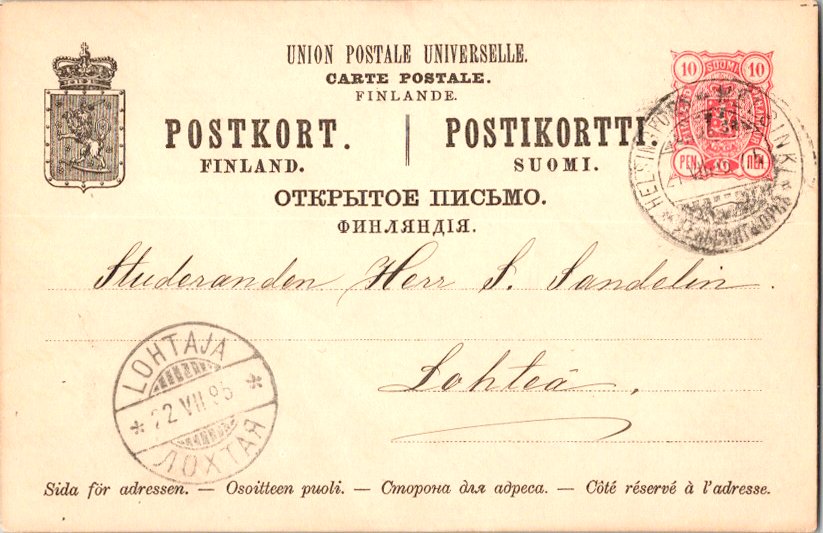 UNION POSTALE UNIVERSELLE.
CARTE POSTALE.
FINLANDE.
POSTKORT. POSTIKORTTI.
FINLAND. SUOMI.
ОТКРЫТОЕ ПИСЬМО.
ФИНЛЯНДІЯ.
10 SUOMI 10
PEN ПЕН
HELSING
Studeranden Herr S. Sandelin.
Lohteå,
LOHTAJA
22 VII 95
ЛОХТАЯ
Sida för adressen. — Osoitteen puoli. — Сторона для адреса. — Côté réservé à l'adresse.